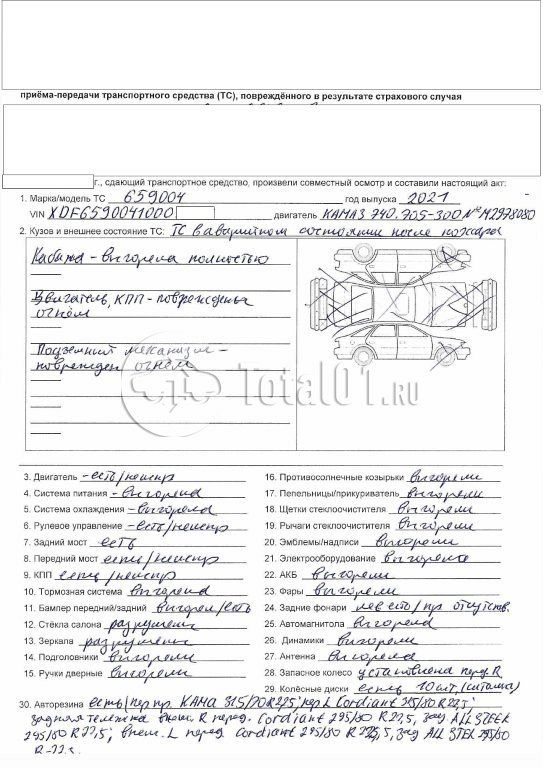 приёма-передачи транспортного средства (ТС), повреждённого в результате страхового случая
г., сдающий транспортное средство, произвели совместный осмотр и составили настоящий акт:
1. Марка/модель ТС 659004 год выпуска 2021
VIN XDF6590041000 двигатель КАМАЗ 740.705-300 № М2978080
2. Кузов и внешнее состояние ТС: ТС в аварийном состоянии после пожара
Кабина - выгорела полностью
Двигатель, КПП - повреждены огнём
Подъемный механизм - повреждён огнём
Total01.RU
3. Двигатель - есть/неиспр
4. Система питания - выгорела
5. Система охлаждения - выгорела
6. Рулевое управление - есть/неиспр
7. Задний мост есть
8. Передний мост есть/неиспр
9. КПП есть/неиспр
10. Тормозная система выгорела
11. Бампер передний/задний выгорел/есть
12. Стёкла салона разрушены
13. Зеркала разрушены
14. Подголовники выгорели
15. Ручки дверные выгорели
16. Противосолнечные козырьки выгорели
17. Пепельницы/прикуриватель выгорели
18. Щетки стеклоочистителя выгорели
19. Рычаги стеклоочистителя выгорели
20. Эмблемы/надписи выгорели
21. Электрооборудование выгорело
22. АКБ выгорели
23. Фары выгорели
24. Задние фонари лев есть/пр отсутств.
25. Автомагнитола выгорела
26. Динамики выгорели
27. Антенна выгорела
28. Запасное колесо установлена перед. R
29. Колёсные диски есть 10 шт. (штамп)
30. Авторезина есть/пер пр. КАМА 315/80 R22,5 пер L Cordiant 315/80 R22,5
задняя тележка внеш. R перед. Cordiant 295/80 R22,5, зад ALL STEEL
295/80 R22,5, внеш. L перед Cordiant 295/80 R22,5, зад ALL STEEL 295/80
R-22,5